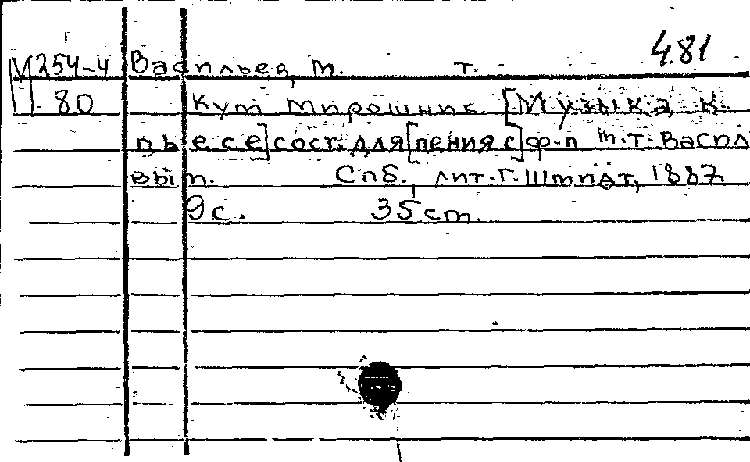 481
М254-4 Васильев, М. Т.
80 Кум Мирошник [Музыка к
пьесе] сост. для [пения с] ф-п М.Т. Васил
вым. Спб., лит. Г. Шмидт, 1887.
9с. 35 cm.